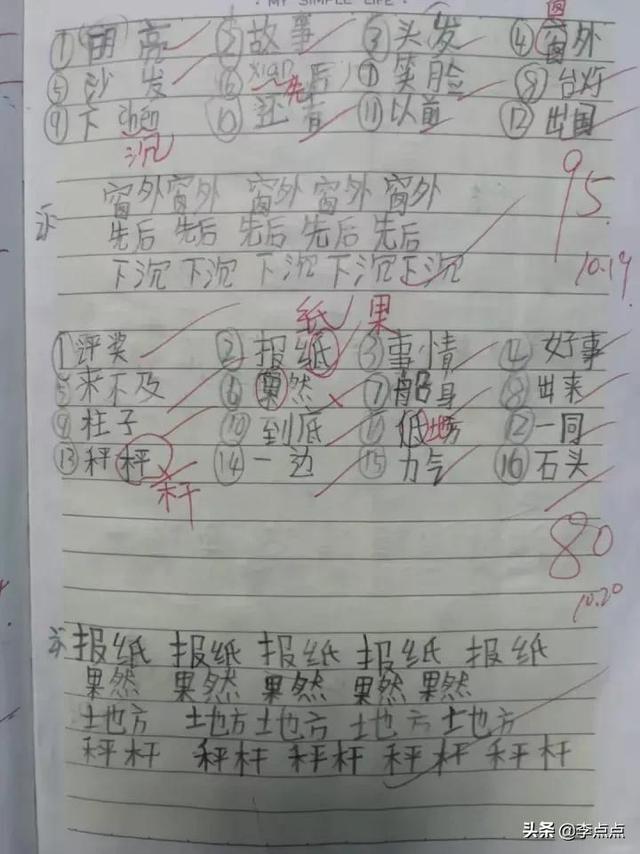 MY SIMPLE LIFE
窗
①明亮 ②故事 ③头发 ④窗外
⑤沙发 ⑥xiān先后 ⑦笑脸 ⑧台灯
⑨下chén ⑩还有 ⑪以前 ⑫出国
沉
95
窗外 窗外 窗外 窗外 窗外
先后 先后 先后 先后 先后
下沉 下沉 下沉 下沉 下沉
10.19
纸 果
①评奖 ②报纸 ③事情 ④好事
⑤来不及 ⑥果然 ⑦船身 ⑧出来
⑨柱子 ⑩到底 ⑪地方 ⑫一同
⑬秤秤 ⑭一边 ⑮力气 ⑯石头
杆
80
10.20
报纸 报纸 报纸 报纸 报纸
果然 果然 果然 果然 果然
土地方 土地方 土地方 土地方 土地方
秤杆 秤杆 秤杆 秤杆 秤杆
头条 @李点点